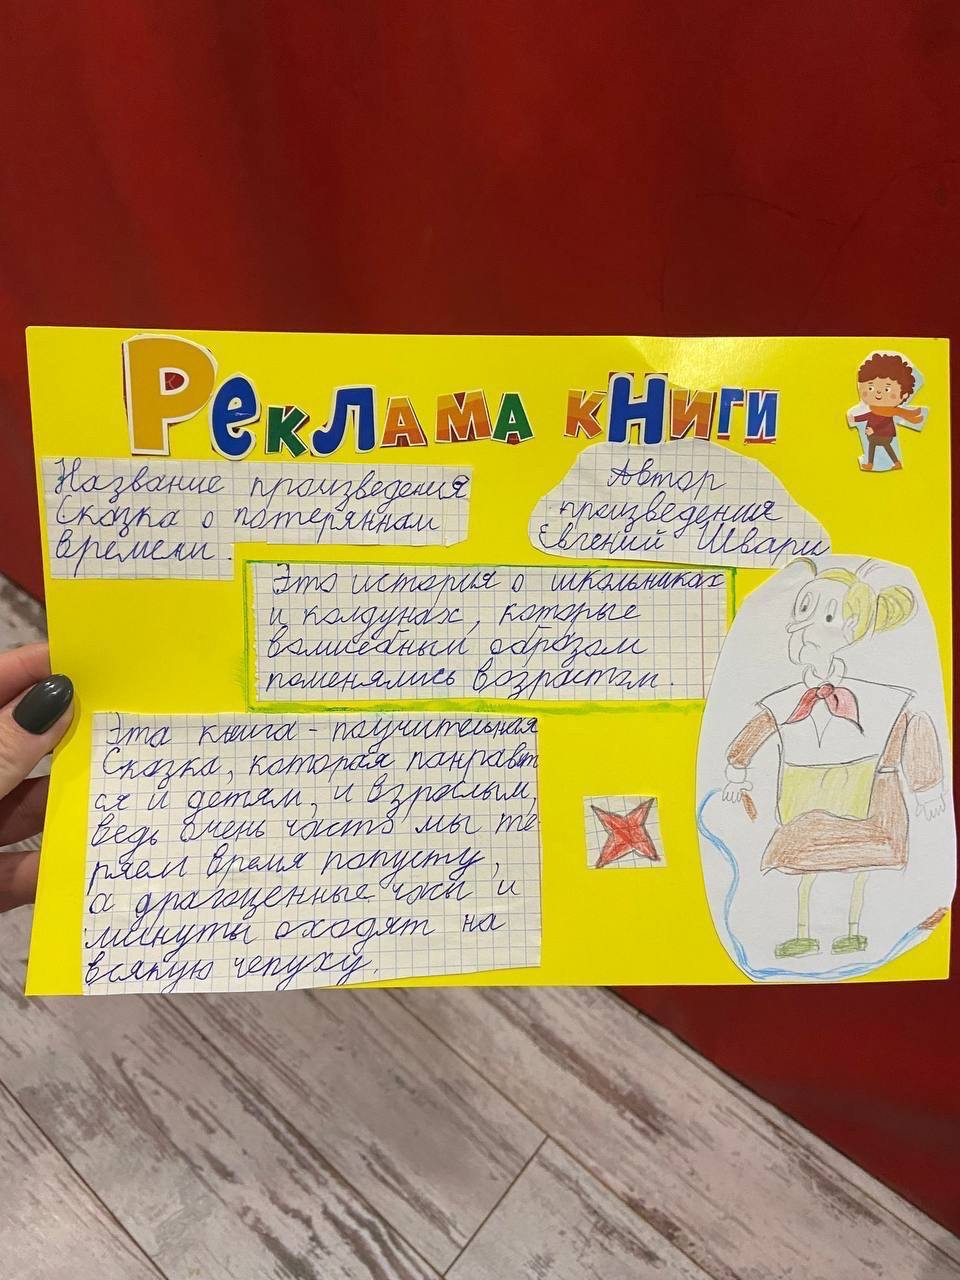 Реклама книги
Название произведения
Сказка о потерянном
времени.
Автор
произведения
Евгений Шварц
Это история о школьниках
и колдунах, которые
волшебным образом
поменялись возрастом.
Эта книга - поучительная
Сказка, которая понравит
ся и детям, и взрослым,
ведь очень часто мы те
ряем время попусту,
а драгоценные часы и
минуты уходят на
всякую чепуху.